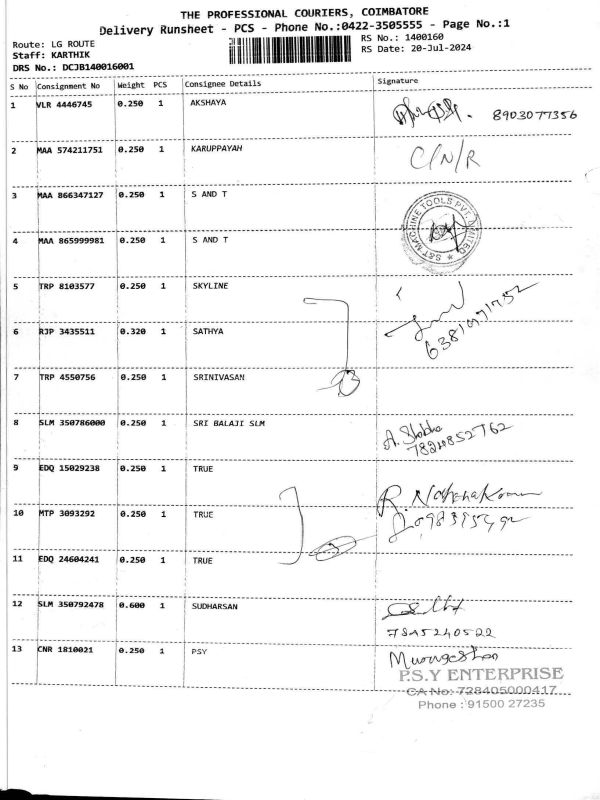 THE PROFESSIONAL COURIERS, COIMBATORE
Delivery Runsheet - PCS - Phone No.:0422-3505555 - Page No.:1
Route: LG ROUTE
Staff: KARTHIK
DRS No.: DCJB140016001
RS No.: 1400160
RS Date: 20-Jul-2024
S No Consignment No Weight PCS Consignee Details Signature
1 VLR 4446745 0.250 1 AKSHAYA 8903077356
2 MAA 574211751 0.250 1 KARUPPAYAH C/N/R
3 MAA 866347127 0.250 1 S AND T
S&T MACHINE TOOLS PVT. LIMITED
4 MAA 865999981 0.250 1 S AND T
5 TRP 8103577 0.250 1 SKYLINE
6 RJP 3435511 0.320 1 SATHYA
7 TRP 4550756 0.250 1 SRINIVASAN
3
8 SLM 350786000 0.250 1 SRI BALAJI SLM
A. Shobha
9 EDQ 15029238 0.250 1 TRUE
10 MTP 3093292 0.250 1 TRUE
3
11 EDQ 24604241 0.250 1 TRUE
12 SLM 350792478 0.600 1 SUDHARSAN
7845240522
13 CNR 1810021 0.250 1 PSY
P.S.Y ENTERPRISE
CA No: 728405000417
Phone : 91500 27235